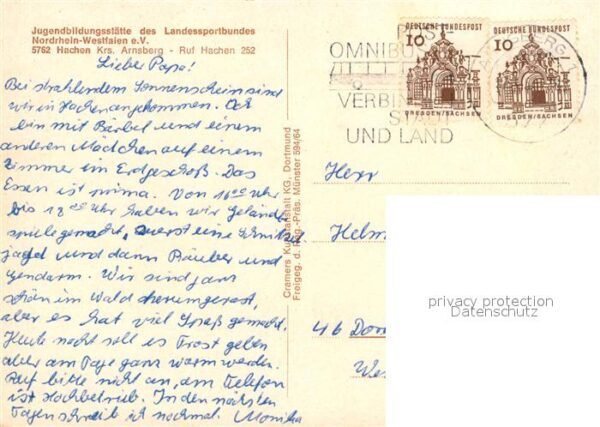 Jugendbildungsstätte des Landessportbundes
Nordrhein-Westfalen e.V.
5762 Hachen Krs. Arnsberg - Ruf Hachen 252
Lieber Papa!
Bei strahlendem Sonnenschein sind
wir in Hachen angekommen. Ich
bin mit Bärbel und einem
anderen Mädchen auf einem
Zimmer im Erdgeschoß. Das
Essen ist prima. Von 16 00 Uhr
bis 18 00 Uhr haben wir Gelände
spiele gemacht, zuerst eine Schnitzel
jagd und dann Räuber und
Gendarm. Wir sind ganz
schön im Wald herumgerast,
aber es hat viel Spaß gemacht.
Heute nacht soll es Frost geben
aber am Tage ganz warm werden.
Ruf bitte nicht an, am Telefon
ist Hochbetrieb. In den nächsten
Tagen schreib ich nochmal. Monika
Cramers Kunstanstalt KG. Dortmund
Freigeg. d. Reg.-Präs. Münster 594/64
OMNIBU
VERBIN
UND LAND
10
DEUTSCHE BUNDESPOST
DRESDEN/SACHSEN
10
DEUTSCHE BUNDESPOST
DRESDEN/SACHSEN
Herr
Helm
46 Dor
We
privacy protection
Datenschutz